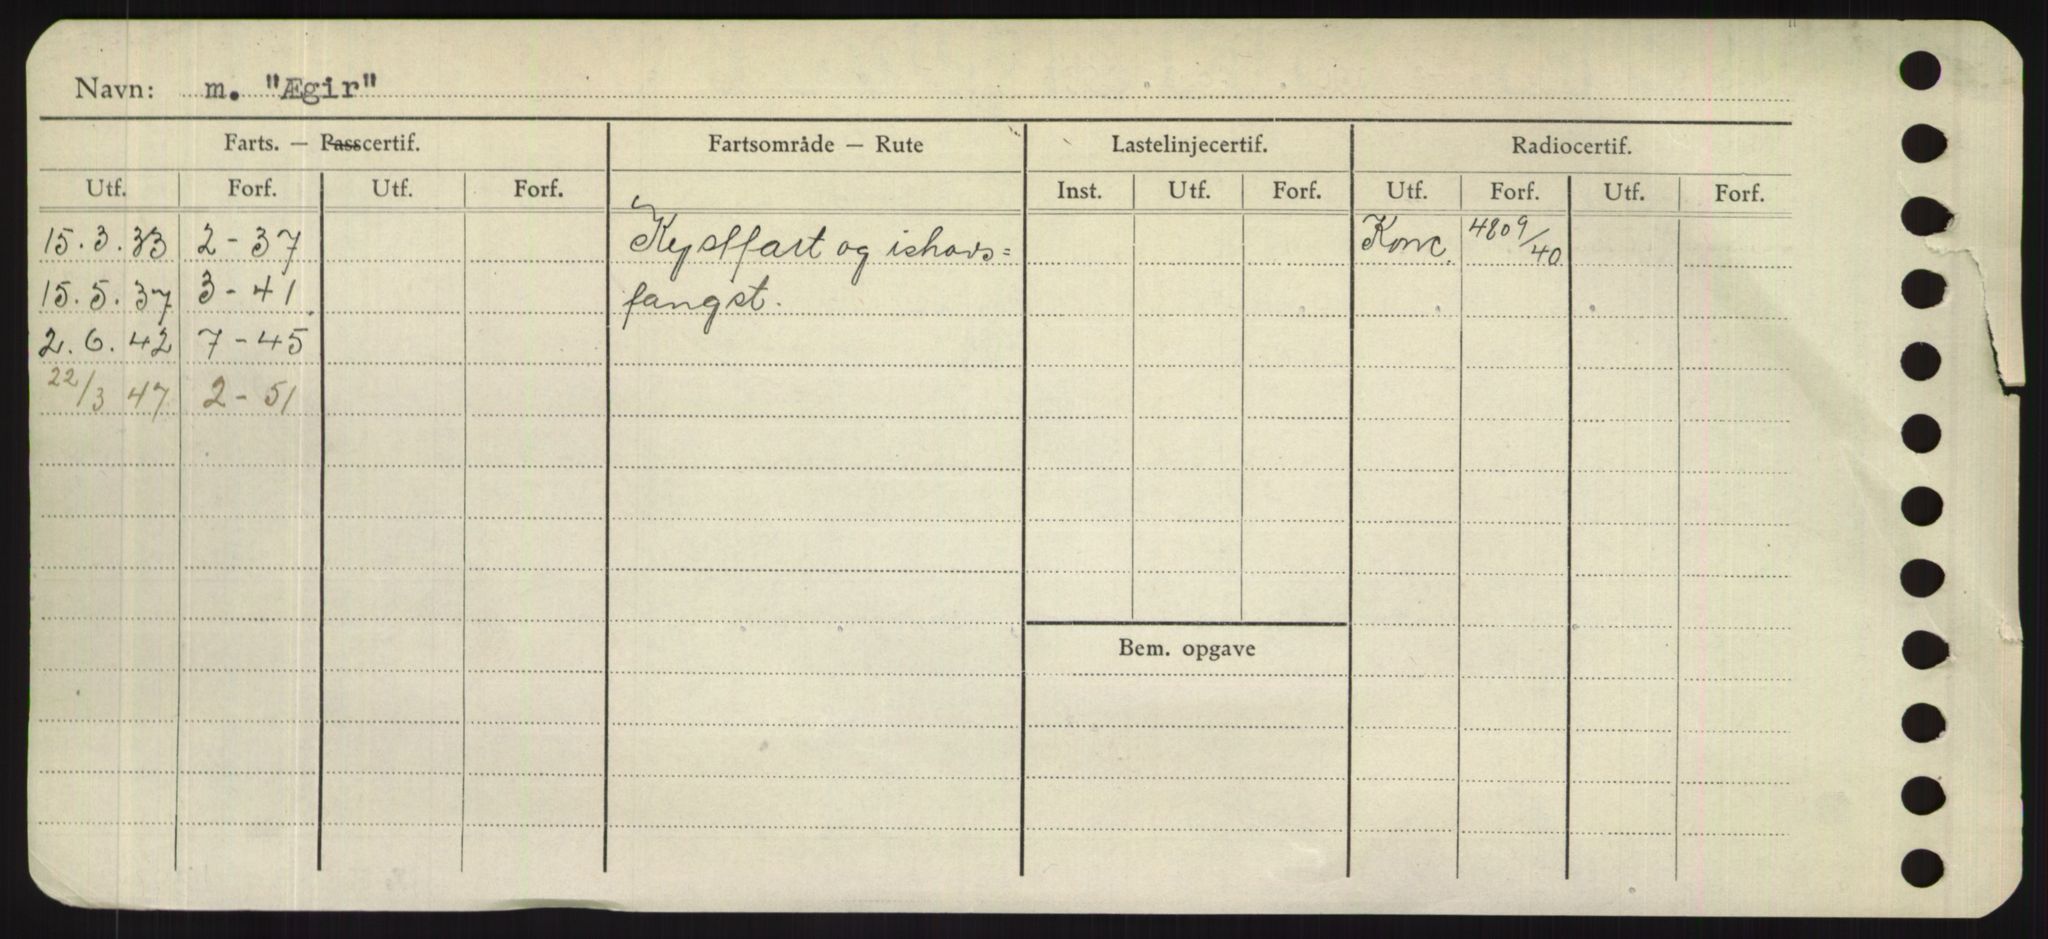 Navn: m. "Ægir"
Farts. — Passcertif. Fartsområde — Rute Lastelinjecertif. Radiocertif.
Utf. Forf. Utf. Forf. Inst. Utf. Forf. Utf. Forf. Utf. Forf.
15.3.33 2-37 Kystfart og ishavs= Konc. 4809/40
15.5.37 3-41 fangst.
2.6.42 7-45
22/3 47 2-51
Bem. opgave